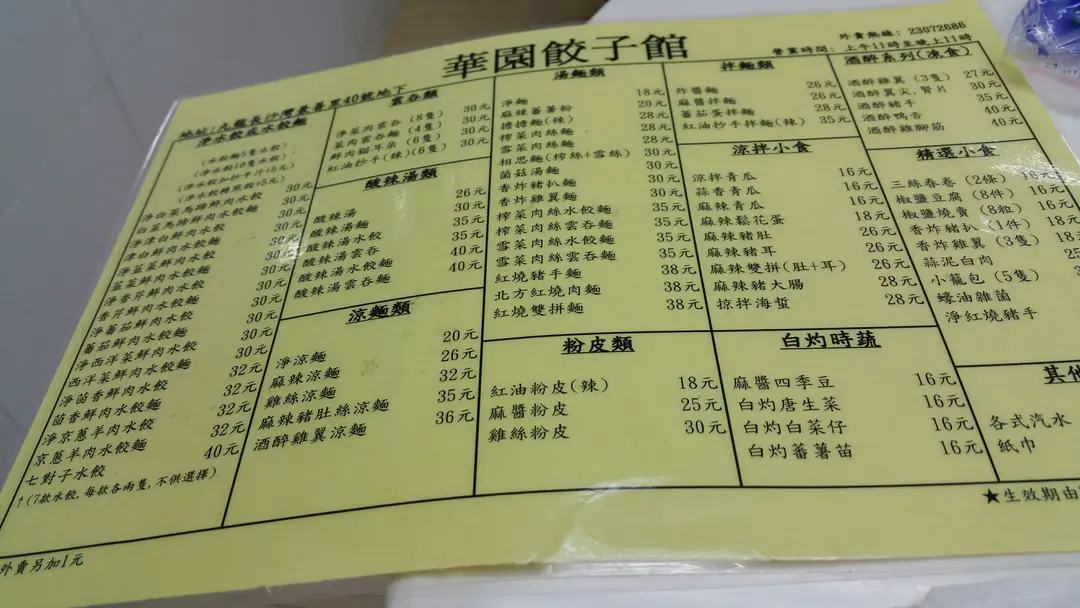 華園餃子館
外賣熱線: 23072686
營業時間: 上午11時至晚上11時
地址:九龍長沙灣慈善里40號地下
淨水餃或水餃麵
(水餃麵5隻水餃)
(淨水餃10隻水餃)
(淨水餃加抄手汁+5元)
(淨水餃轉煎餃+5元)
淨白菜馬蹄鮮肉水餃 30元
白菜馬蹄鮮肉水餃麵 30元
淨津白鮮肉水餃 30元
津白鮮肉水餃麵 30元
淨韮菜鮮肉水餃 30元
韮菜鮮肉水餃麵 30元
淨香芹鮮肉水餃 30元
香芹鮮肉水餃麵 30元
淨蕃茄鮮肉水餃 30元
蕃茄鮮肉水餃麵 30元
淨西洋菜鮮肉水餃 30元
西洋菜鮮肉水餃麵 30元
淨茴香鮮肉水餃 32元
茴香鮮肉水餃麵 32元
淨京蔥羊肉水餃 32元
京蔥羊肉水餃麵 32元
七對子水餃 40元
↑(7款水餃,每款各兩隻,不供選擇)
外賣另加1元
雲吞類
淨菜肉雲吞 (8隻) 30元
菜肉雲吞麵 (4隻) 30元
鮮肉貓耳朵 (6隻) 30元
紅油抄手(辣)(6隻) 30元
酸辣湯類
酸辣湯 26元
酸辣湯麵 30元
酸辣湯水餃 35元
酸辣湯雲吞 35元
酸辣湯水餃麵 40元
酸辣湯雲吞麵 40元
涼麵類
淨涼麵 20元
麻辣涼麵 26元
雞絲涼麵 32元
麻辣豬肚絲涼麵 35元
酒醉雞翼涼麵 36元
湯麵類
淨麵 18元
麻辣蕃薯粉 20元
擔擔麵(辣) 28元
榨菜肉絲麵 28元
雪菜肉絲麵 28元
相思麵(榨絲+雪絲) 30元
菌菇湯麵 30元
香炸豬扒麵 30元
香炸雞翼麵 30元
榨菜肉絲水餃麵 35元
榨菜肉絲雲吞麵 35元
雪菜肉絲水餃麵 35元
雪菜肉絲雲吞麵 35元
紅燒豬手麵 38元
北方紅燒肉麵 38元
紅燒雙拼麵 38元
粉皮類
紅油粉皮(辣) 18元
麻醬粉皮 25元
雞絲粉皮 30元
拌麵類
炸醬麵 26元
麻醬拌麵 26元
蕃茄蛋拌麵 28元
紅油抄手拌麵(辣) 35元
涼拌小食
涼拌青瓜 16元
蒜香青瓜 16元
麻辣青瓜 16元
麻辣鬆花蛋 18元
麻辣豬肚 26元
麻辣豬耳 26元
麻辣雙拼(肚+耳) 26元
麻辣豬大腸 28元
掠拌海蜇 28元
白灼時蔬
麻醬四季豆 16元
白灼唐生菜 16元
白灼白菜仔 16元
白灼蕃薯苗 16元
酒醉系列(凍食)
酒醉雞翼 (3隻) 27元
酒醉翼尖,腎片 30元
酒醉豬手 35元
酒醉鴨舌 40元
酒醉雞腳筋 40元
精選小食
三絲春卷 (2條)
椒鹽豆腐 (8件)
椒鹽燒賣 (8粒)
香炸豬扒 (1件)
香炸雞翼 (3隻)
蒜泥白肉
小籠包 (5隻)
蠔油雜菌
淨紅燒豬手
其他
各式汽水
紙巾
★生效期由